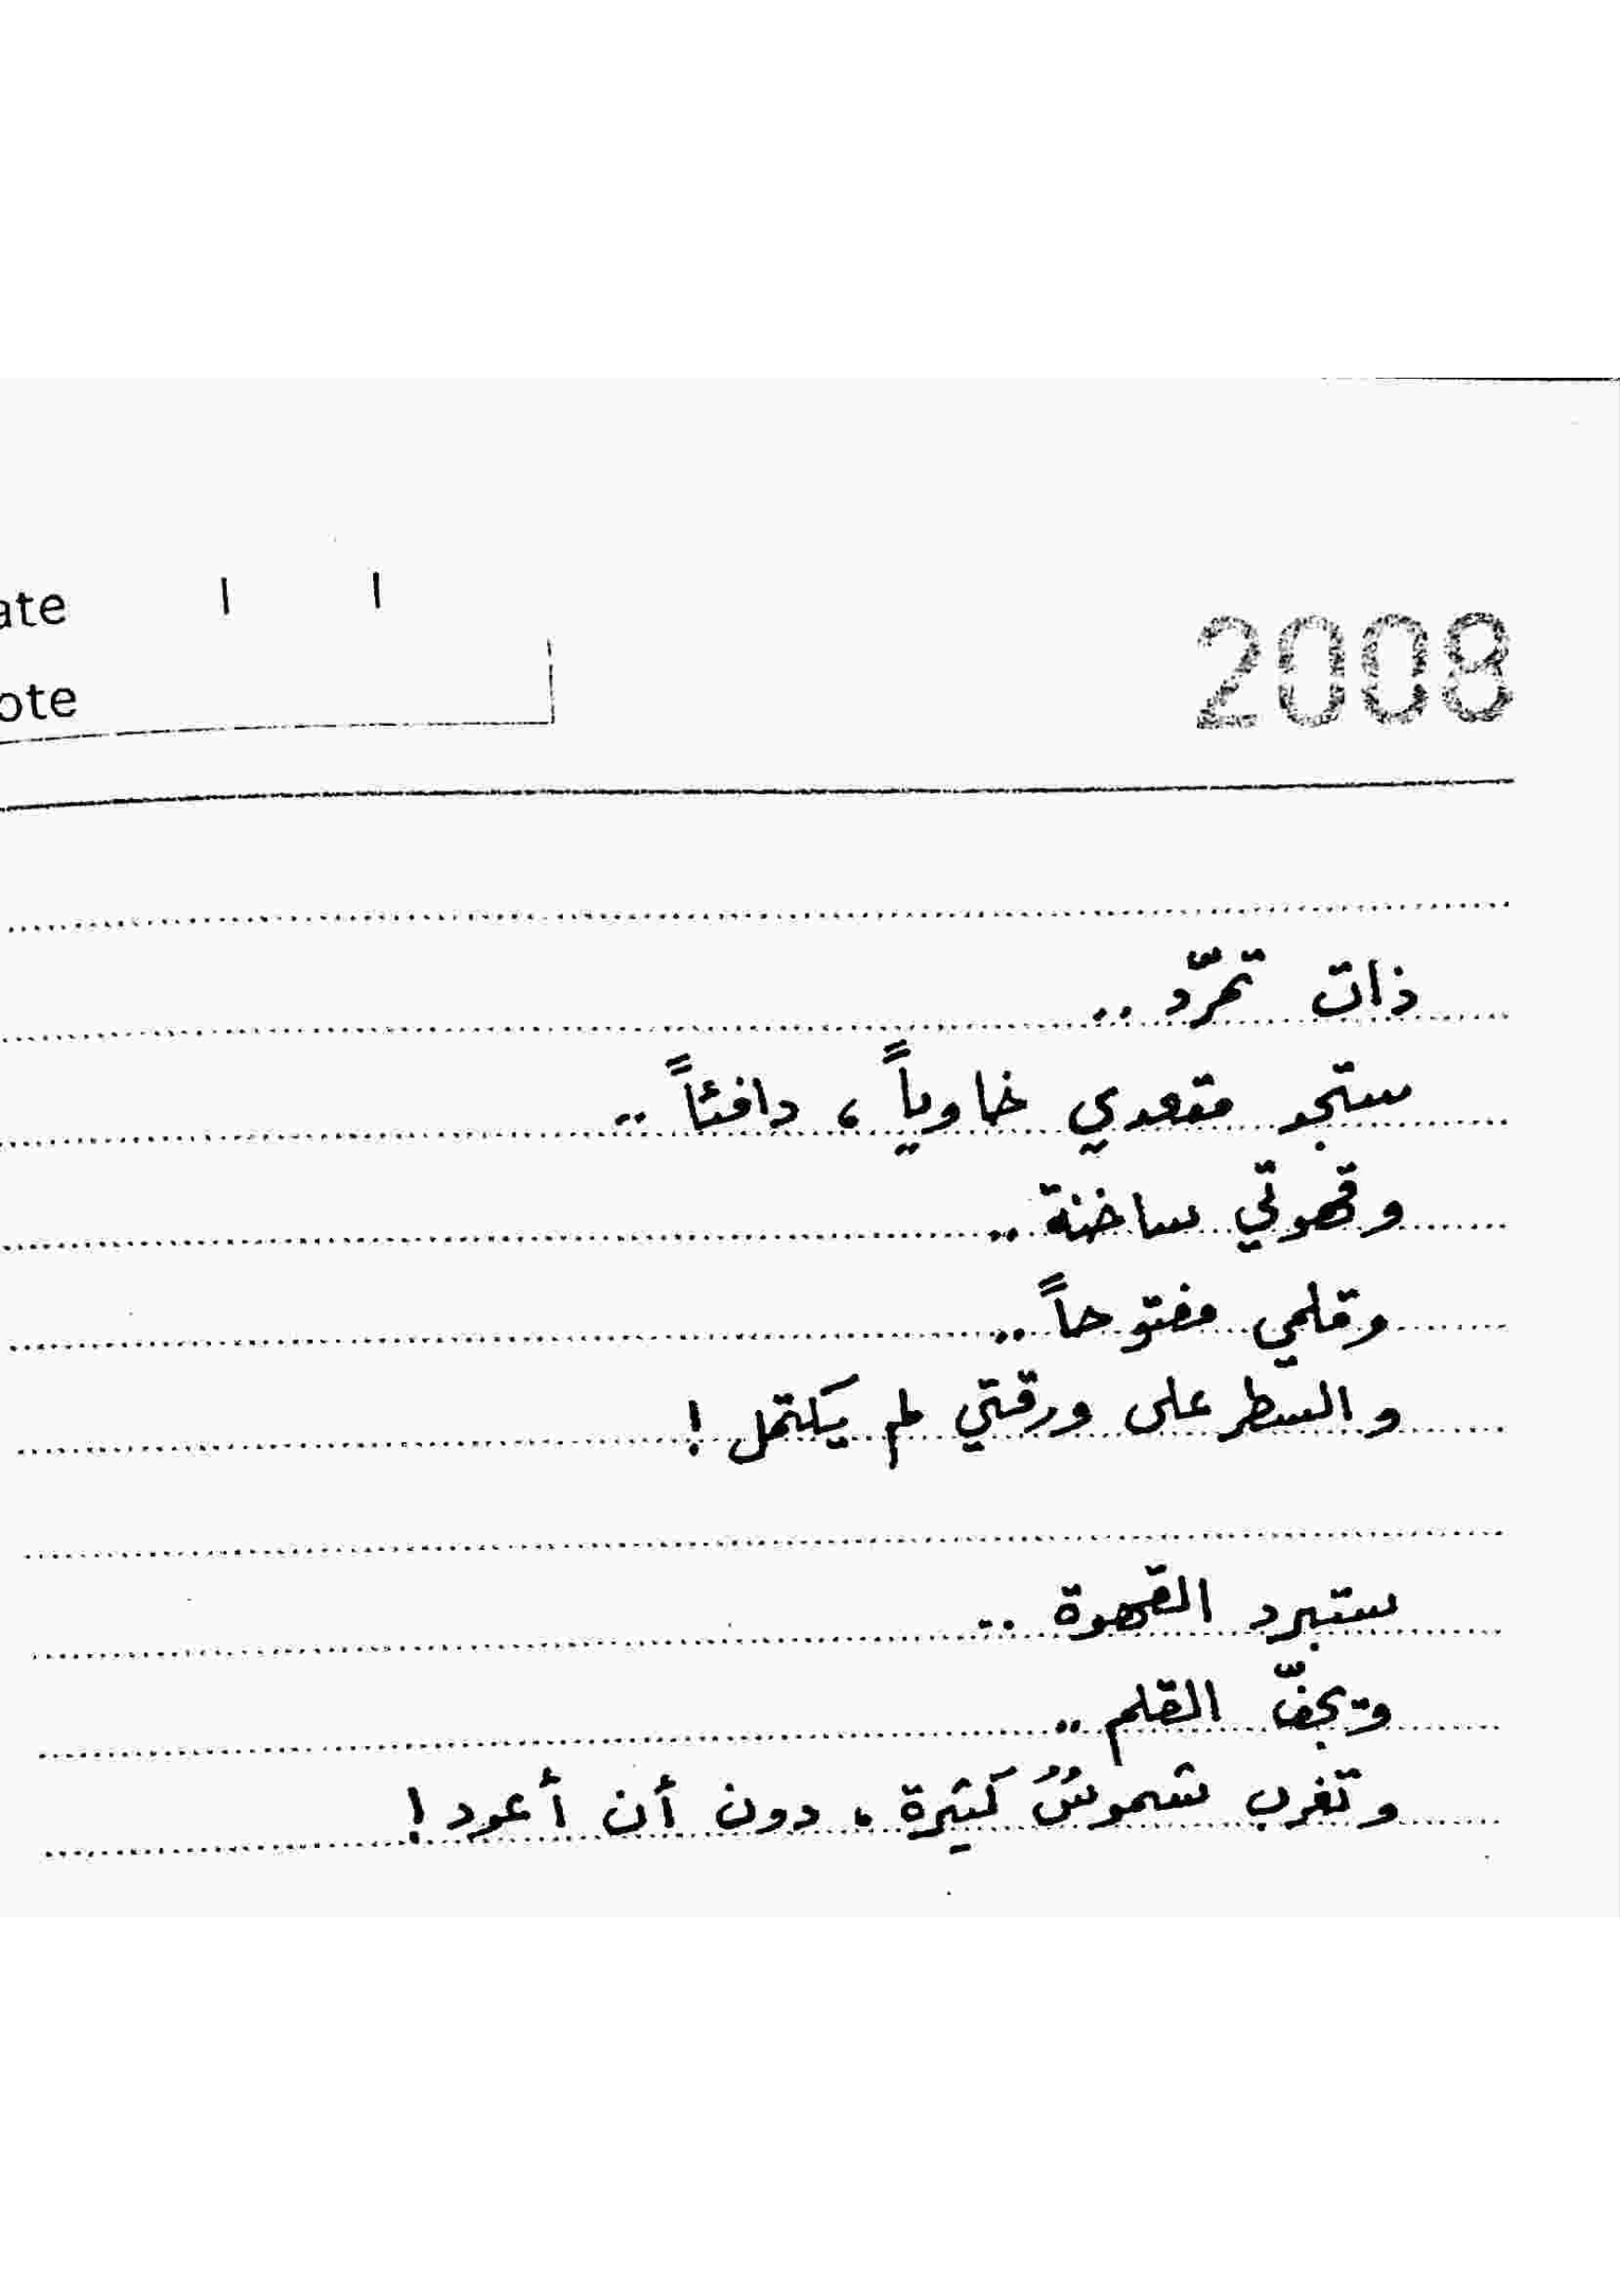 ate / /
2008
ote
ذات تمرّد ..
ستجد مقعدي خاوياً ، دافئاً ..
وقهوتي ساخنة ..
وقلمي مفتوحاً ..
والسطر على ورقتي لم يكتمل !
ستبرد القهوة ..
ويجفّ القلم ..
وتغرب شموسٌ كثيرة ، دون أن أعود !